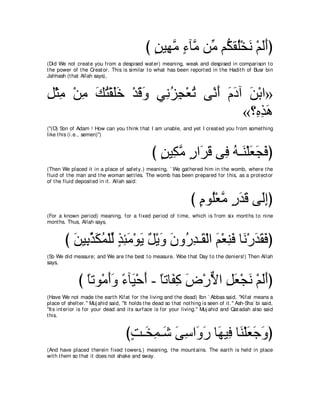 ﴿أَلَمْ نَخْلُقكُّم مِّن مَّآءٍ مَّهِينٍ ﴾
(Did We not create you from a despised water) meaning, weak and despised in comparison to
the power of the Creator. This is similar to what has been reported in the Hadith of Busr bin
Jahhash (that Allah says),
«ابْنَ آدَمَ أَنَّى تُعْجِزُنِي وَقَدْ خَلَقْتُكَ مِنْ مِثْلِ
هَذِهِ؟»
("(O) Son of Adam! How can you think that I am unable, and yet I created you from something
like this (i.e., semen)")
﴿فَجَعَلْنَـهُ فِى قَرَارٍ مَّكِينٍ ﴾
(Then We placed it in a place of safety,) meaning, ` We gathered him in the womb, where the
fluid of the man and the woman settles. The womb has been prepared for this, as a protector
of the fluid deposited in it. Allah said:
﴿إِلَى قَدَرٍ مَّعْلُومٍ ﴾
(For a known period) meaning, for a fixed period of time, which is from six months to nine
months. Thus, Allah says,
﴿فَقَدَرْنَا فَنِعْمَ الْقَـدِرُونَ وَيْلٌ يَوْمَئِذٍ لِّلْمُكَذِّبِينَ ﴾
(So We did measure; and We are the best to measure. Woe that Day to the deniers!) Then Allah
says,
﴿أَلَمْ نَجْعَلِ الاٌّرْضَ كِفَاتاً - أَحْيَآءً وَأَمْوتاً ﴾
(Have We not made the earth Kifat for the living and the dead) Ibn ` Abbas said, "Kifat means a
place of shelter." Mujahid said, "It holds the dead so that nothing is seen of it." Ash-Sha` bi said,
"Its interior is for your dead and its surface is for your living." Mujahid and Qatadah also said
this.
﴿وَجَعَلْنَا فِيهَا رَوَاسِىَ شَـمِخَـتٍ﴾
(And have placed therein fixed towers,) meaning, the mountains. The earth is held in place
with them so that it does not shake and sway.